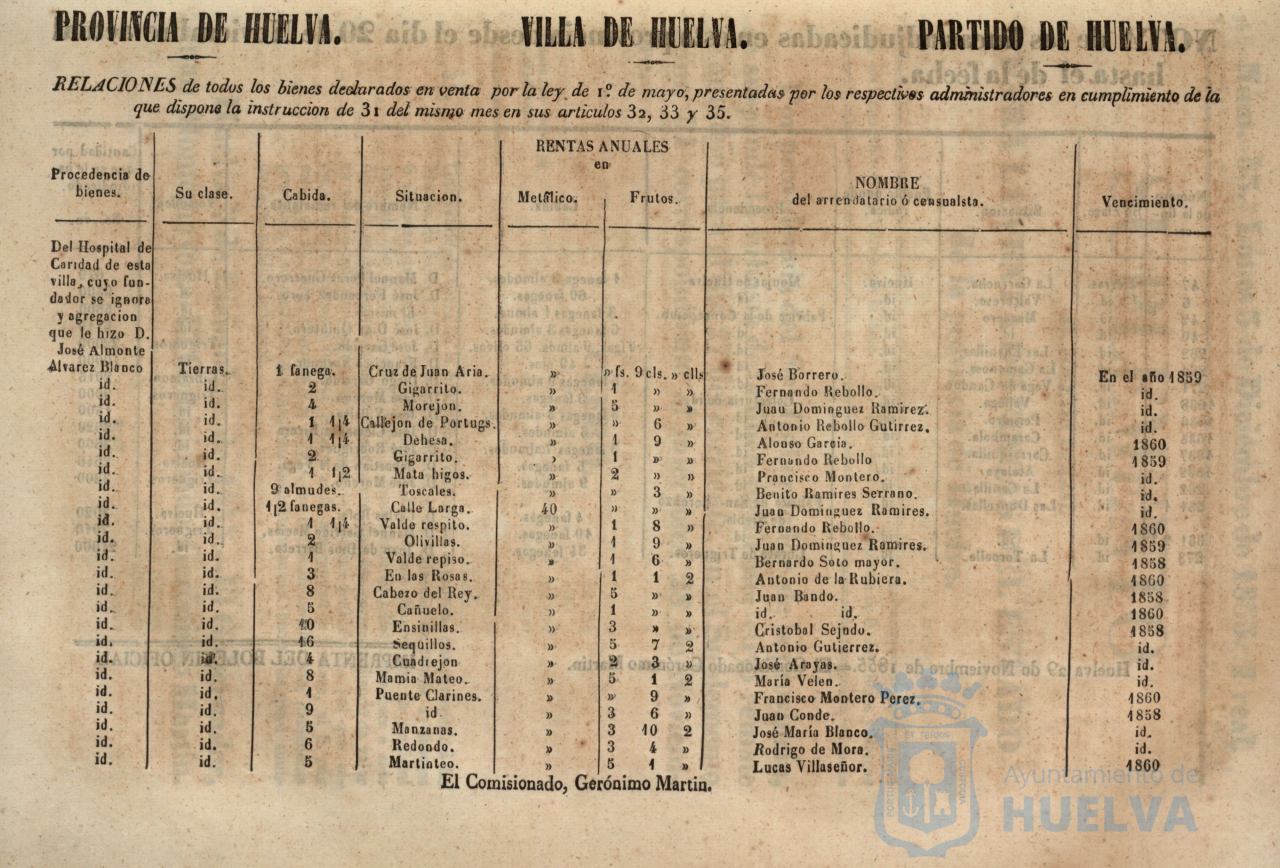 PROVINCIA DE HUELVA. VILLA DE HUELVA. PARTIDO DE HUELVA.
RELACIONES de todos los bienes declarados en venta por la ley de 1º. de mayo, presentadas por los respectivos administradores en cumplimiento de la
que dispone la instruccion de 31 del mismo mes en sus articulos 32, 33 y 35.
Procedencia de bienes. Su clase. Cabida. Situacion. RENTAS ANUALES en Metálico. Frutos. NOMBRE del arrendatario ó censualista. Vencimiento.
Del Hospital de
Caridad de esta
villa, cuyo fun-
dador se ignora
y agregacion
que le hizo D.
José Almonte
Alvarez Blanco Tierras. 1 fanega. Cruz de Juan Aria. » » fs. 9 cls. » clls José Borrero. En el año 1859
id. id. 2 Gigarrito. » 1 » » Fernando Rebollo. id.
id. id. 4 Morejon. » 5 » » Juan Dominguez Ramirez. id.
id. id. 1 1|4 Callejon de Portugs. » » 6 » Antonio Rebollo Gutirrez. id.
id. id. 1 1|4 Dehesa. » 1 9 » Alonso Garcia. 1860
id. id. 2 Gigarrito. » 1 » » Fernando Rebollo 1859
id. id. 1 1|2 Mata higos. » 2 » » Francisco Montero. id.
id. id. 9 almudes. Toscales. » » 3 » Benito Ramires Serrano. id.
id. id. 1|2 fanegas. Calle Larga. 40 » » » Juan Dominguez Ramires. id.
id. id. 1 1|4 Valde respito. » 1 8 » Fernando Rebollo. 1860
id. id. 2 Olivillas. » 1 9 » Juan Dominguez Ramires. 1859
id. id. 1 Valde repiso. » 1 6 » Bernardo Soto mayor. 1858
id. id. 3 En las Rosas. » 1 1 2 Antonio de la Rubiera. 1860
id. id. 8 Cabezo del Rey. » 5 » » Juan Bando. 1858
id. id. 5 Cañuelo. » 1 » » id. id. 1860
id. id. 10 Ensinillas. » 3 » » Cristobal Sejudo. 1858
id. id. 16 Sequillos. » 5 7 2 Antonio Gutierrez. id.
id. id. 4 Cuadrejon » 2 3 » José Arayas. id.
id. id. 8 Mamia Mateo. » 5 1 2 María Velen. id.
id. id. 1 Puente Clarines. » » 9 » Francisco Montero Perez. 1860
id. id. 9 id » 3 6 » Juan Conde. 1858
id. id. 5 Manzanas. » 3 10 2 José María Blanco. id.
id. id. 6 Redondo. » 3 4 » Rodrigo de Mora. id.
id. id. 5 Martinteo. » 5 1 » Lucas Villaseñor. 1860
El Comisionado, Gerónimo Martin.
Ayuntamiento de
HUELVA